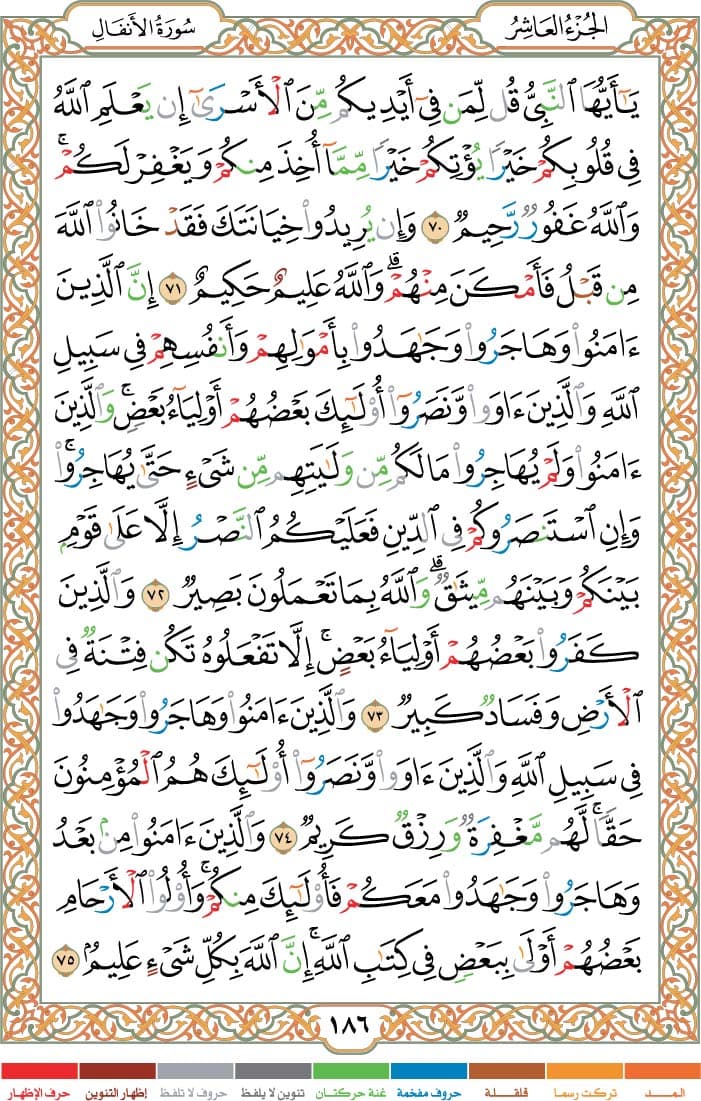 الجُزْءُ العَاشِرُ
سُورَةُ الأَنفَالِ
يَٰٓأَيُّهَا ٱلنَّبِيُّ قُل لِّمَن فِيٓ أَيْدِيكُم مِّنَ ٱلْأَسْرَىٰٓ إِن يَعْلَمِ ٱللَّهُ
فِي قُلُوبِكُمْ خَيْرًا يُؤْتِكُمْ خَيْرًا مِّمَّآ أُخِذَ مِنكُمْ وَيَغْفِرْ لَكُمْۚ
وَٱللَّهُ غَفُورٌ رَّحِيمٌ ٧٠ وَإِن يُرِيدُوا۟ خِيَانَتَكَ فَقَدْ خَانُوا۟ ٱللَّهَ
مِن قَبْلُ فَأَمْكَنَ مِنْهُمْۗ وَٱللَّهُ عَلِيمٌ حَكِيمٌ ٧١ إِنَّ ٱلَّذِينَ
ءَامَنُوا۟ وَهَاجَرُوا۟ وَجَٰهَدُوا۟ بِأَمْوَٰلِهِمْ وَأَنفُسِهِمْ فِي سَبِيلِ
ٱللَّهِ وَٱلَّذِينَ ءَاوَوا۟ وَّنَصَرُوٓا۟ أُو۟لَٰٓئِكَ بَعْضُهُمْ أَوْلِيَآءُ بَعْضٍۚ وَٱلَّذِينَ
ءَامَنُوا۟ وَلَمْ يُهَاجِرُوا۟ مَا لَكُم مِّن وَلَٰيَتِهِم مِّن شَيْءٍ حَتَّىٰ يُهَاجِرُوا۟ۚ
وَإِنِ ٱسْتَنصَرُوكُمْ فِي ٱلدِّينِ فَعَلَيْكُمُ ٱلنَّصْرُ إِلَّا عَلَىٰ قَوْمٍۭ
بَيْنَكُمْ وَبَيْنَهُم مِّيثَٰقٌۗ وَٱللَّهُ بِمَا تَعْمَلُونَ بَصِيرٌ ٧٢ وَٱلَّذِينَ
كَفَرُوا۟ بَعْضُهُمْ أَوْلِيَآءُ بَعْضٍۚ إِلَّا تَفْعَلُوهُ تَكُن فِتْنَةٌ فِي
ٱلْأَرْضِ وَفَسَادٌ كَبِيرٌ ٧٣ وَٱلَّذِينَ ءَامَنُوا۟ وَهَاجَرُوا۟ وَجَٰهَدُوا۟
فِي سَبِيلِ ٱللَّهِ وَٱلَّذِينَ ءَاوَوا۟ وَّنَصَرُوٓا۟ أُو۟لَٰٓئِكَ هُمُ ٱلْمُؤْمِنُونَ
حَقًّاۚ لَّهُم مَّغْفِرَةٌ وَرِزْقٌ كَرِيمٌ ٧٤ وَٱلَّذِينَ ءَامَنُوا۟ مِنۢ بَعْدُ
وَهَاجَرُوا۟ وَجَٰهَدُوا۟ مَعَكُمْ فَأُو۟لَٰٓئِكَ مِنكُمْۚ وَأُو۟لُوا۟ ٱلْأَرْحَامِ
بَعْضُهُمْ أَوْلَىٰ بِبَعْضٍ فِي كِتَٰبِ ٱللَّهِۚ إِنَّ ٱللَّهَ بِكُلِّ شَيْءٍ عَلِيمٌۢ ٧٥
١٨٦
المــد تركت رسما قلقـلة حروف مفخمة غنة حركتان تنوين لا يلفظ حروف لا تلفظ إظهار التنوين حرف الإظهار